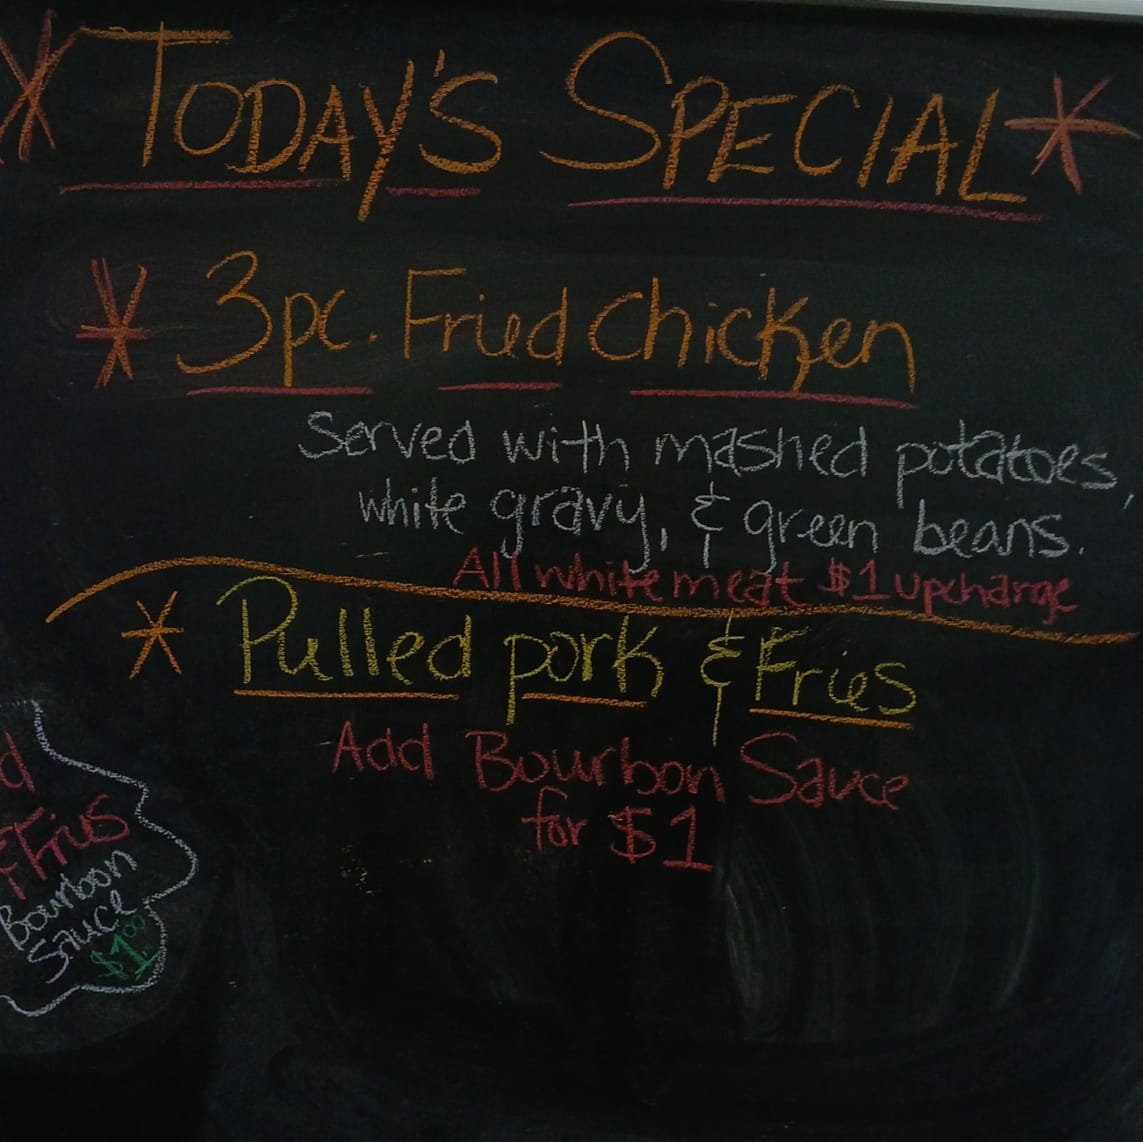 * TODAY'S SPECIAL *
* 3pc. Fried Chicken
Served with mashed potatoes,
white gravy, & green beans.
All white meat $1 upcharge
* Pulled pork & Fries
Add Bourbon Sauce
for $1
d
& Fries
Bourbon
Sauce
$1.00